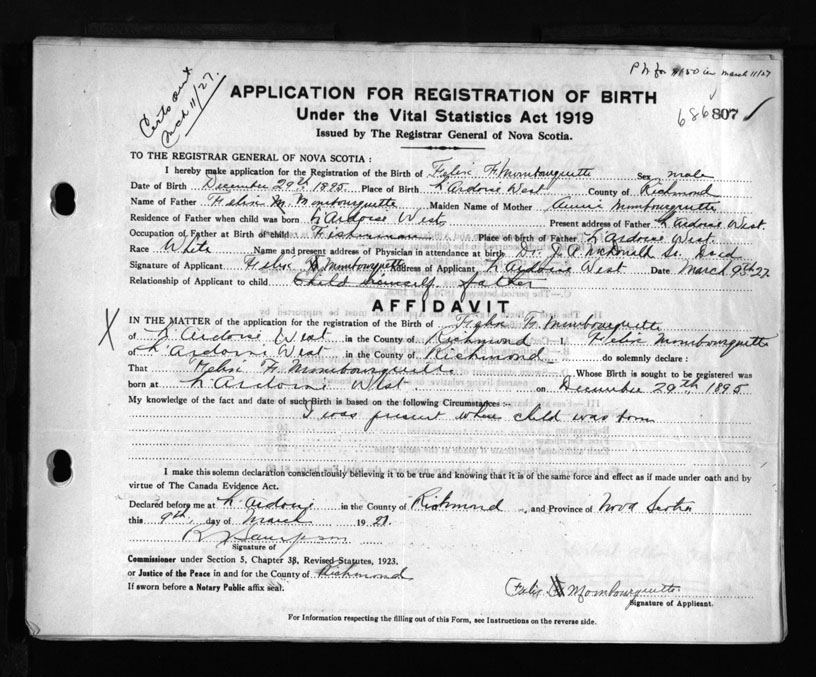 Pd for $1.50 in March 11/27
Cert sent
Mch 11/27.
APPLICATION FOR REGISTRATION OF BIRTH
Under the Vital Statistics Act 1919
686 807
Issued by The Registrar General of Nova Scotia.
TO THE REGISTRAR GENERAL OF NOVA SCOTIA :
I hereby make application for the Registration of the Birth of Felix H Mombourquette Sex male
Date of Birth December 29th 1895 Place of Birth L'Ardoise West County of Richmond
Name of Father Felix M. Mombourquette Maiden Name of Mother Annie Mombourquette
Residence of Father when child was born L'Ardoise West Present address of Father L'Ardoise West.
Occupation of Father at Birth of child Fisherman Place of birth of Father L'Ardoise West.
Race White Name and present address of Physician in attendance at birth Dr. J. A McDonald Sr. Dead
Signature of Applicant Felix Mombourquette Address of Applicant L'Ardoise West Date March 9th 27
Relationship of Applicant to child Child himself father
AFFIDAVIT
X
IN THE MATTER of the application for the registration of the Birth of Felix H. Mombourquette
of L'Ardoise West in the County of Richmond I, Felix Mombourquette
of L'Ardoise West in the County of Richmond do solemnly declare :
That Felix H. Mombourquette Whose Birth is sought to be registered was
born at L'Ardoise West on December 29th, 1895
My knowledge of the fact and date of such Birth is based on the following Circumstances :-
I was present when child was born
I make this solemn declaration conscientiously believing it to be true and knowing that it is of the same force and effect as if made under oath and by
virtue of The Canada Evidence Act.
Declared before me at L'Ardoise in the County of Richmond and Province of Nova Scotia
this 9th, day of March 1927.
Sampson
Signature of
Commissioner under Section 5, Chapter 38, Revised Statutes, 1923.
or Justice of the Peace in and for the County of Richmond
If sworn before a Notary Public affix seal.
Felix Mombourquette
Signature of Applicant.
For Information respecting the filling out of this Form, see Instructions on the reverse side.